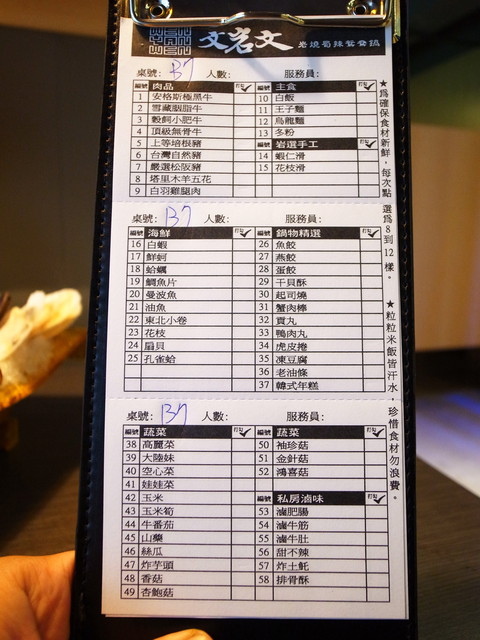 文岩文 岩燒蜀辣鴛鴦鍋
桌號: B7 人數: 服務員:
編號 肉品 打勾 編號 主食 打勾
1 安格斯極黑牛 10 白飯
2 雪藏胭脂牛 11 王子麵
3 穀飼小肥牛 12 烏龍麵
4 頂級無骨牛 13 冬粉
5 上等培根豬 岩選手工
6 台灣自然豬 14 蝦仁滑
7 嚴選松阪豬 15 花枝滑
8 塔里木羊五花
9 白羽雞腿肉
桌號: B7 人數: 服務員:
編號 海鮮 打勾 編號 鍋物精選 打勾
16 白蝦 26 魚餃
17 鮮蚵 27 燕餃
18 蛤蠣 28 蛋餃
19 鯛魚片 29 干貝酥
20 曼波魚 30 起司燒
21 油魚 31 蟹肉棒
22 東北小卷 32 貢丸
23 花枝 33 鴨肉丸
24 扇貝 34 虎皮捲
25 孔雀蛤 35 凍豆腐
36 老油條
37 韓式年糕
桌號: B7 人數: 服務員:
編號 蔬菜 打勾 編號 蔬菜 打勾
38 高麗菜 50 袖珍菇
39 大陸妹 51 金針菇
40 空心菜 52 鴻喜菇
41 娃娃菜
42 玉米 編號 私房滷味 打勾
43 玉米筍 53 滷肥腸
44 牛番茄 54 滷牛筋
45 山藥 55 滷牛肚
46 絲瓜 56 甜不辣
47 炸芋頭 57 炸土魠
48 香菇 58 排骨酥
49 杏鮑菇
★為確保食材新鮮,每次點選為8到12樣。
★粒粒米飯皆汗水,珍惜食材勿浪費。